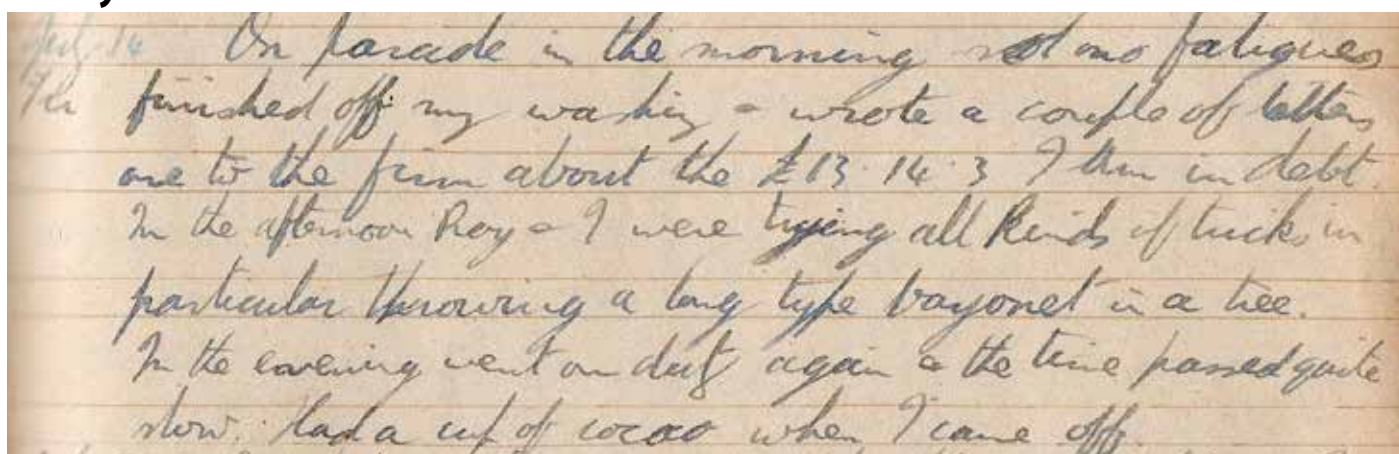 July 14 On parade in the morning no fatigues
finished off my washing & wrote a couple of letters
one to the firm about the £13.14.3 I am in debt.
In the afternoon Roy & I were trying all kinds of tricks in
particular throwing a long type bayonet in a tree.
In the evening went on duty again & the time passed quite
slow. Had a cup of cocoa when I came off.